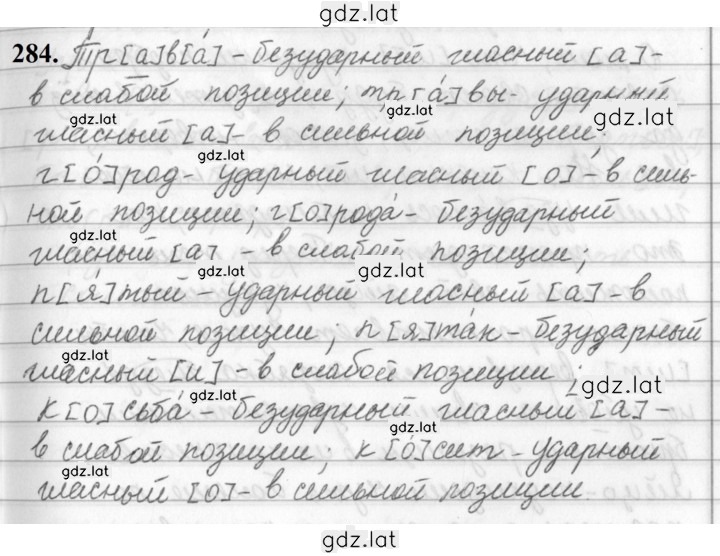 gdz.lat
284. Тр[а]в[а́] - безударный гласный [а] -
в слабой позиции; тр[а́]вы - ударный
gdz.lat
gdz.lat
gdz.lat
гласный [а] - в сильной позиции;
gdz.lat
г[о́]род - ударный гласный [о] - в силь-
ной позиции; г[о]рода́ - безударный
gdz.lat
gdz.lat
гласный [а] - в слабой позиции;
gdz.lat
gdz.lat
п[я́]тый - ударный гласный [а] - в
сильной позиции, п[я]та́к - безударный
gdz.lat
гласный [и] - в слабой позиции;
gdz.lat
к[о]сьба́ - безударный гласный [а] -
gdz.lat
в слабой позиции; к[о́]сит - ударный
gdz.lat
gdz.lat
гласный [о] - в сильной позиции.
gdz.lat